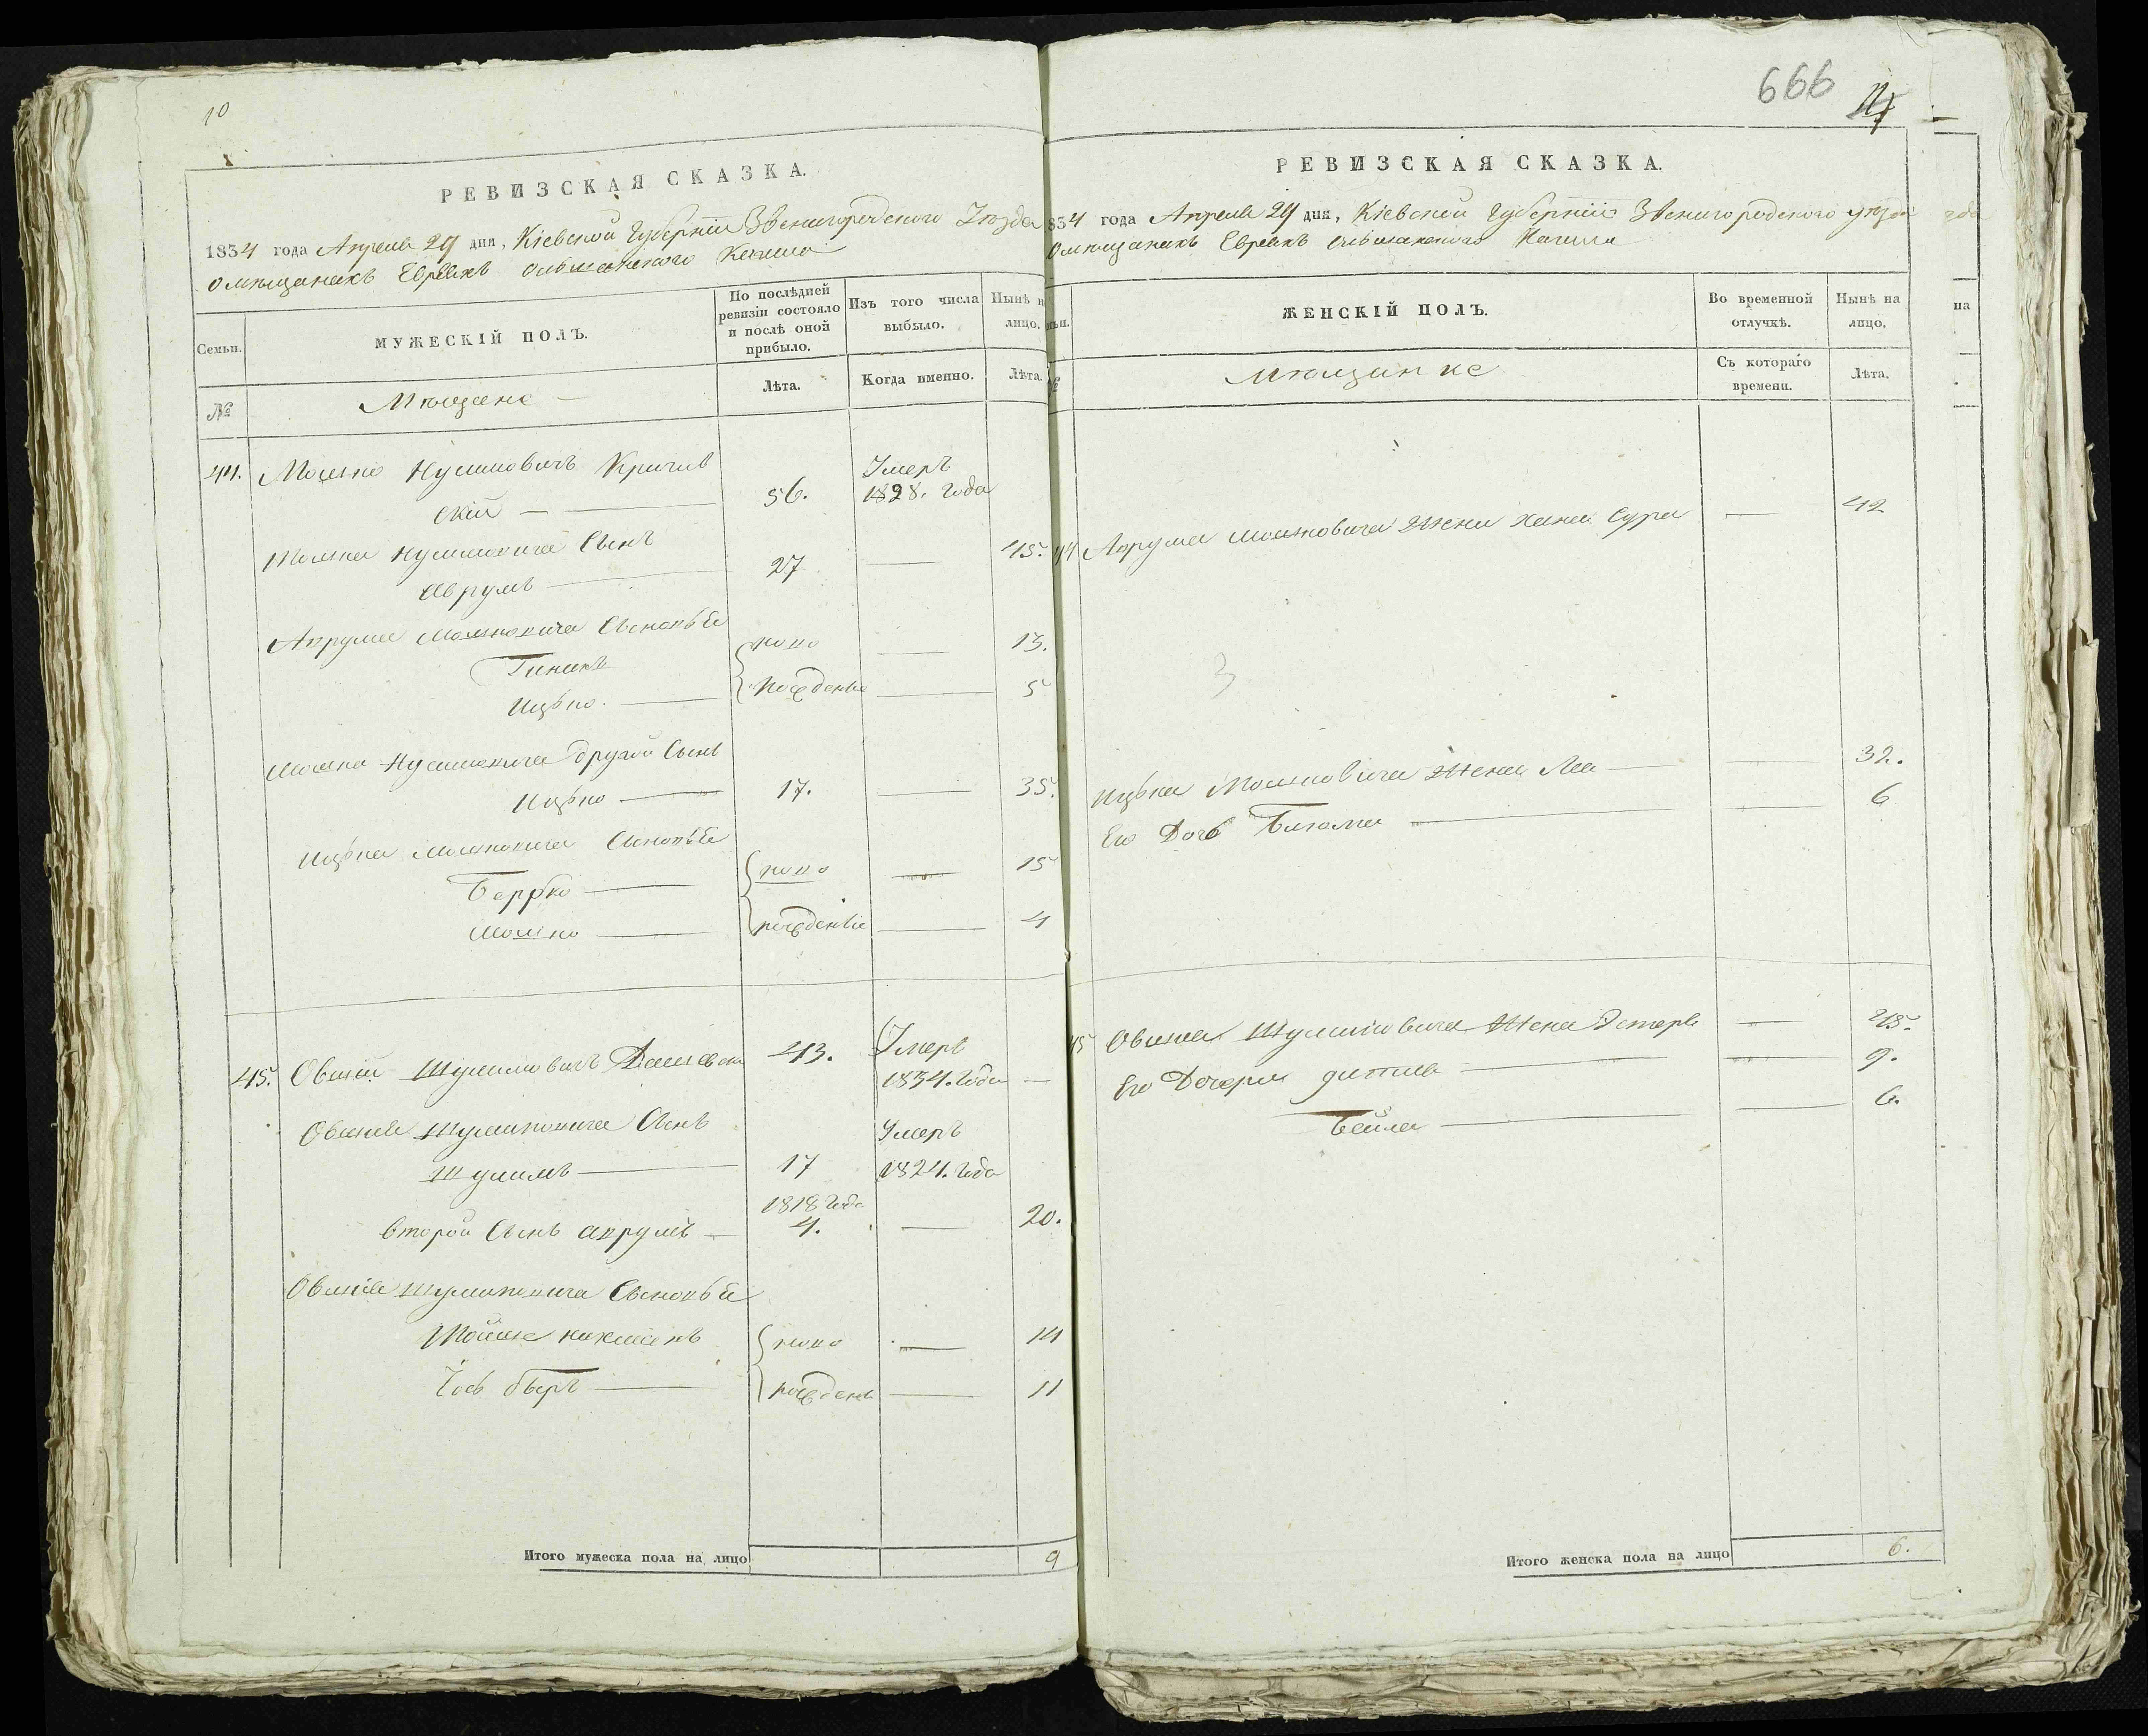 10
РЕВИЗСКАЯ СКАЗКА.
1834 года Апреля 29 дня, Кіевской Губерніи Звенигородского Уѣзда
о мѣщанахъ Евреяхъ Ольшанского Кагала
Семьи.
МУЖЕСКІЙ ПОЛЪ.
По послѣдней ревизіи состояло и послѣ оной прибыло.
Изъ того числа выбыло.
Нынѣ на лицо.
№
Мѣщане
Лѣта.
Когда именно.
Лѣта.
44. Мошко Нусимовичъ Кричев
ской 56. Умеръ 1828. года
Мошка Нусимовича Сынъ
Аврумъ 27 45.
Аврума Мошковича Сыновья
ново 13.
Ицько. рожденые 5
Мошка Нусимовича другой Сынъ
Ицько 17. 35.
Ицька Мошковича Сыновья
Берко ново 15
Мошко рожденые 4
45. Овшій Шулимовичъ 43. Умеръ 1834. года
Овшія Шулимовича Сынъ
Шулимъ 17 Умеръ 1824. года
1818 года
второй Сынъ Аврумъ 4. 20.
Овшія Шулимовича Сыновья
ново 14
Іось Беръ рожденые 11
Итого мужеска пола на лицо 9
666
11
РЕВИЗСКАЯ СКАЗКА.
1834 года Апреля 29 дня, Кіевской Губерніи Звенигородского уѣзда
о мѣщанахъ Евреяхъ Ольшанского Кагала
ЖЕНСКІЙ ПОЛЪ.
Во временной отлучкѣ.
Нынѣ на лицо.
№
Мѣщанке
Съ котораго времени.
Лѣта.
44 Аврума Мошковича Жена Хана Сура 42
3
Ицька Мошковича Жена Леа 32.
Его Дочь 6
45 Овшія Шулимовича Жена Эстеръ 45.
Его Дочери 9.
Бейла 6.
Итого женска пола на лицо 6.